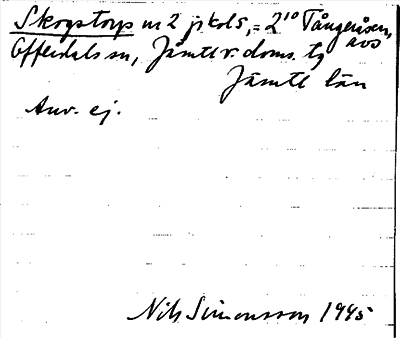 Skogstorp nr 2 jkol 5, = 2¹⁰ Tångeråsen,
avs
Offerdals sn, Jämtl v. doms. tg
Jämtl län
Anv. ej.
Nils Simonsson 1945